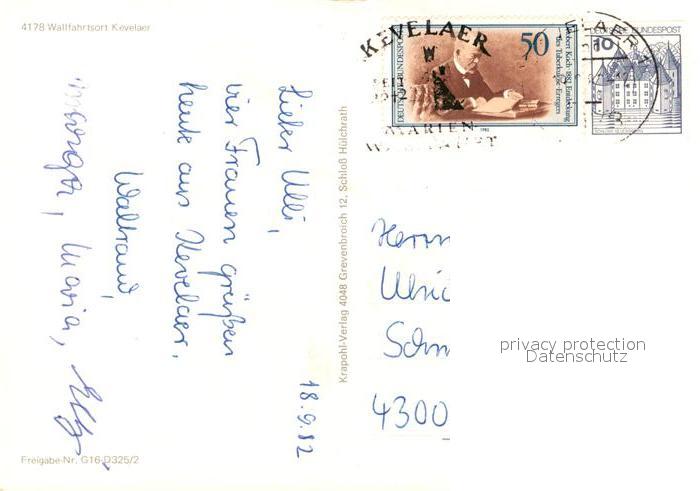 4178 Wallfahrtsort Kevelaer
18.9.82
Lieber Ulli,
vier Frauen grüßen
heute aus Kevelaer.
Waltraud,
Maria,
Freigabe-Nr. G16-D325/2
Krapohl-Verlag 4048 Grevenbroich 12, Schloß Hülchrath
KEVELAER
SEIT
MARIEN
DEUTSCHE BUNDESPOST
50
Robert Koch 1882 Entdeckung
des Tuberkulose-Erregers
1982
DEUTSCHE BUNDESPOST
10
Herrn
Ulric
Schn
4300
privacy protection
Datenschutz